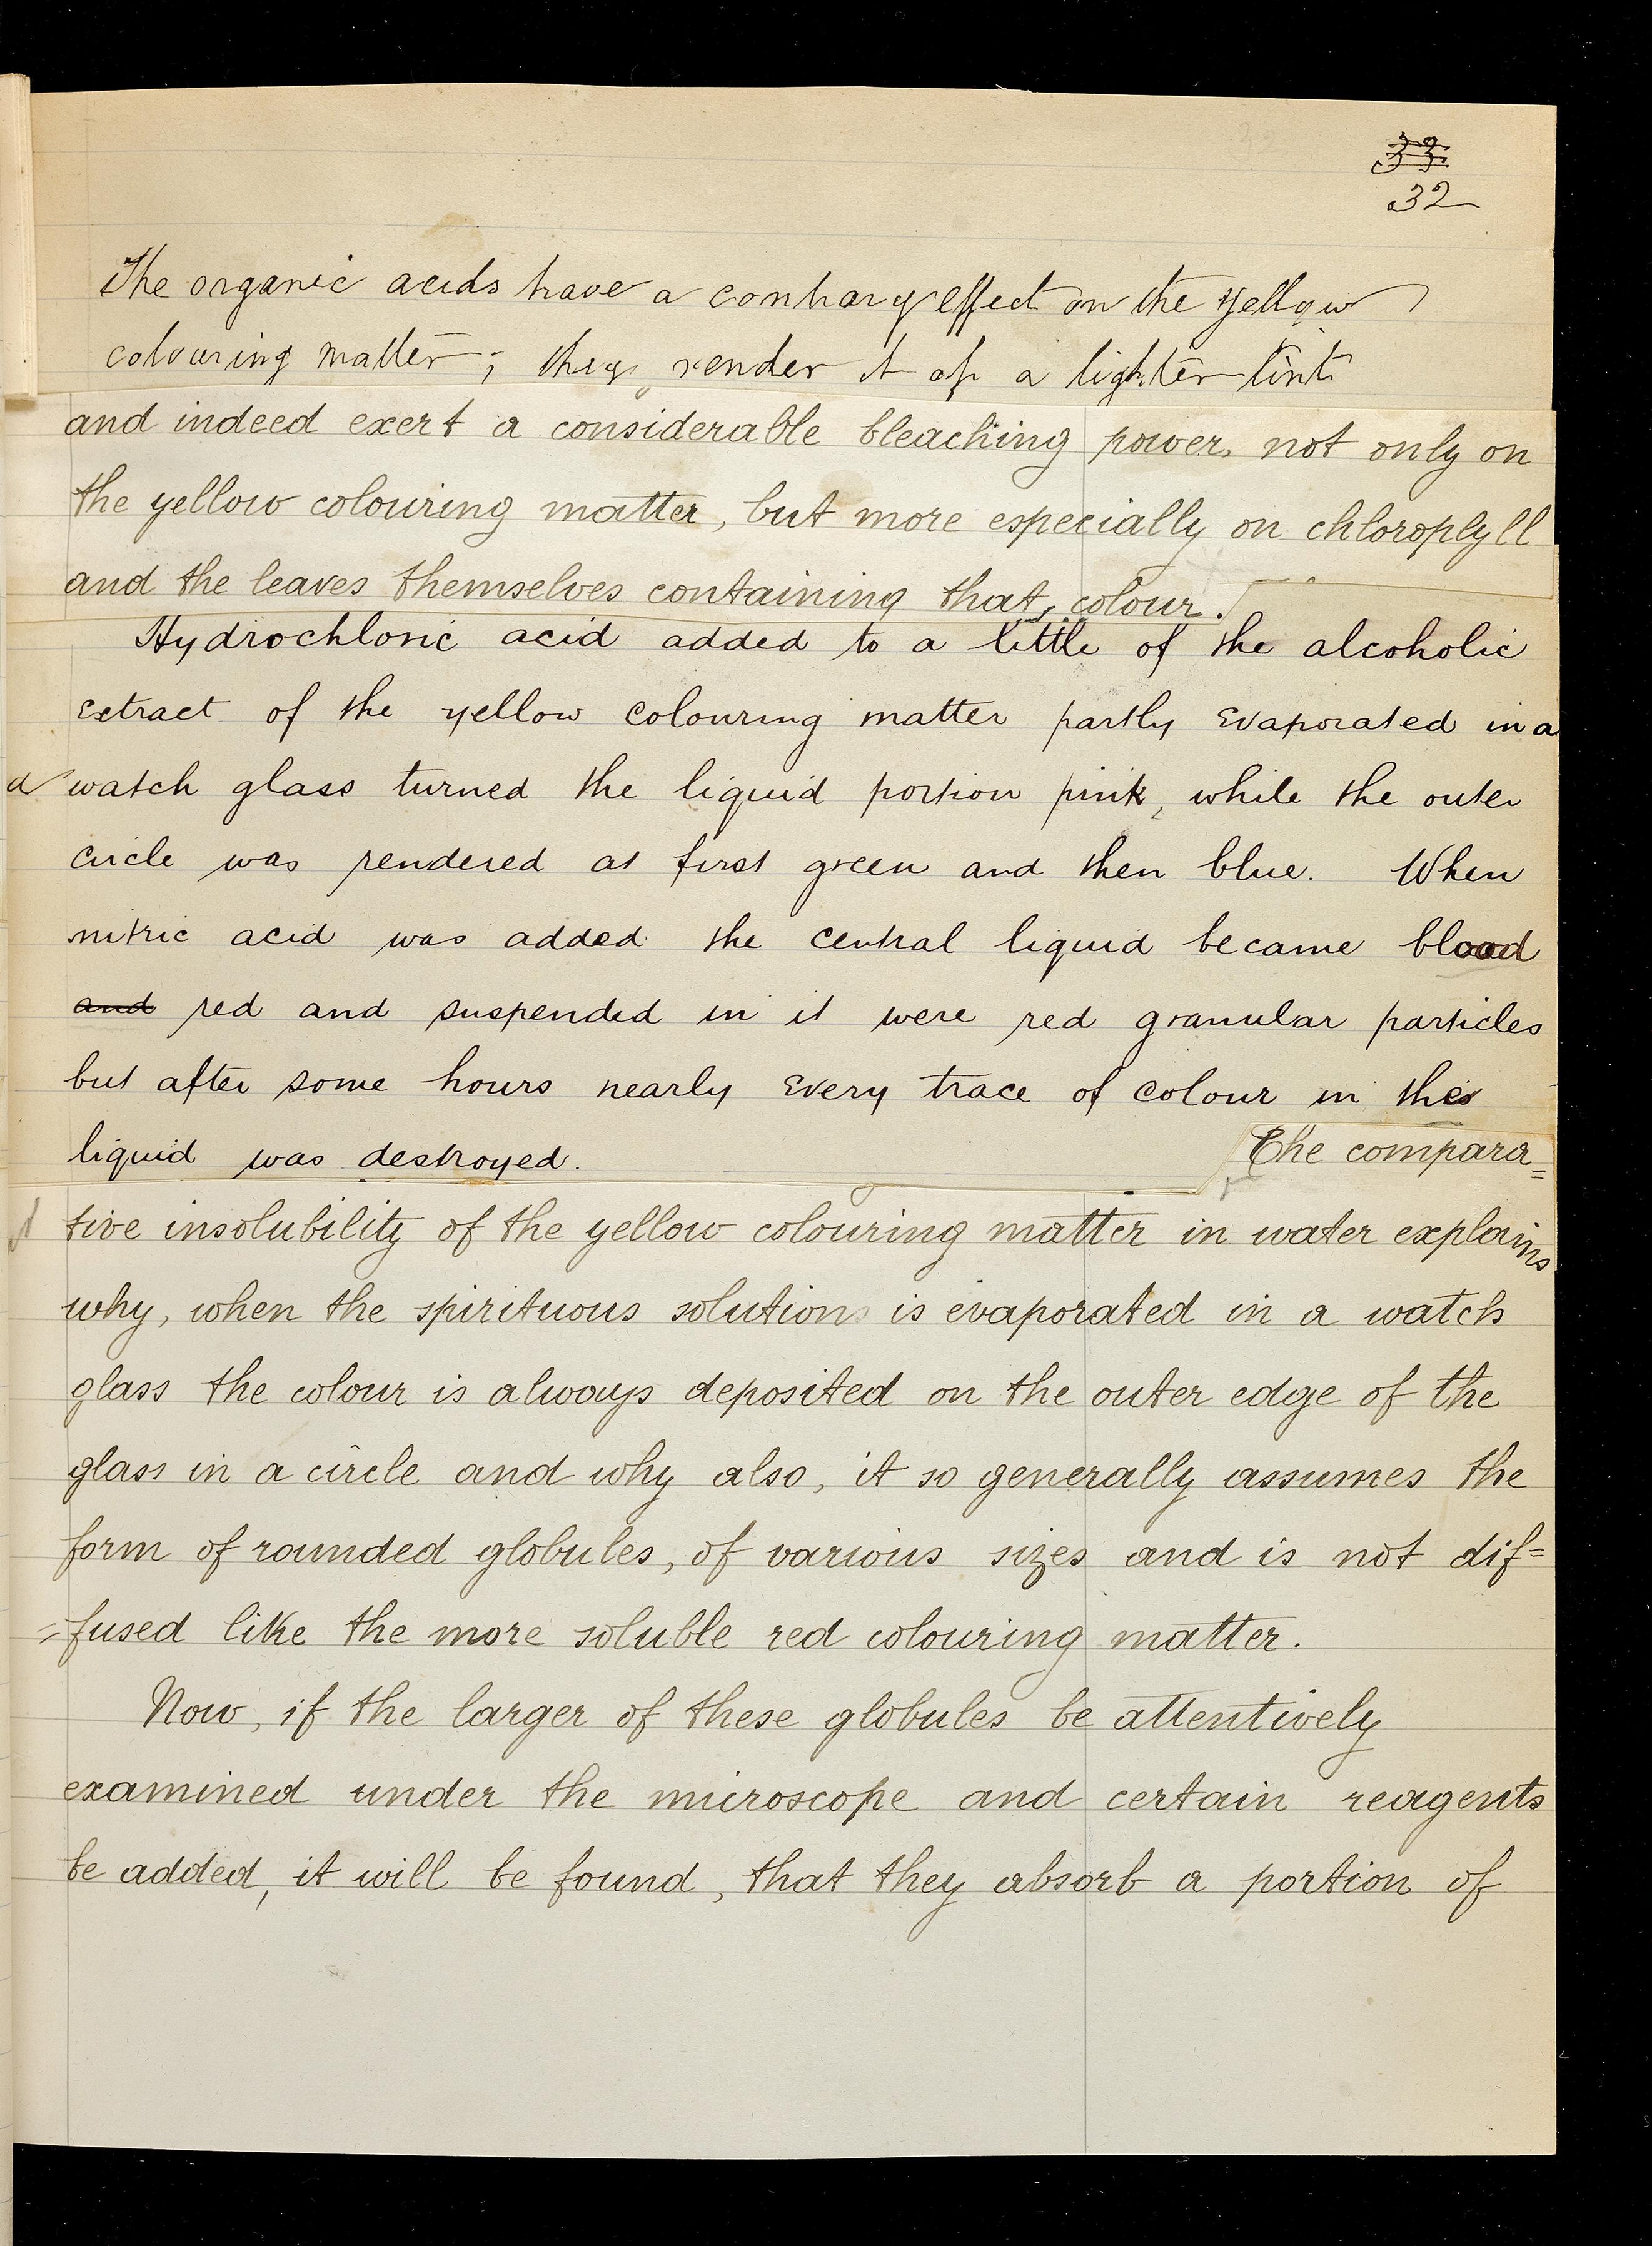 33
32
The organic acids have a contrary effect on the yellow
colouring matter; they render it of a lighter tint
and indeed exert a considerable bleaching power, not only on
the yellow colouring matter, but more especially on chlorophyll
and the leaves themselves containing that, colour.
Hydrochloric acid added to a little of the alcoholic
extract of the yellow colouring matter partly evaporated in a
a watch glass turned the liquid portion pink, while the outer
circle was rendered at first green and then blue. When
nitric acid was added the central liquid became blood
and red and suspended in it were red granular particles
but after some hours nearly every trace of colour in the
liquid was destroyed. The compara=
tive insolubility of the yellow colouring matter in water explains
why, when the spirituous solution is evaporated in a watch
glass the colour is always deposited on the outer edge of the
glass in a circle and why also, it so generally assumes the
form of rounded globules, of various sizes and is not dif=
=fused like the more soluble red colouring matter.
Now, if the larger of these globules be attentively
examined under the microscope and certain reagents
be added, it will be found, that they absorb a portion of